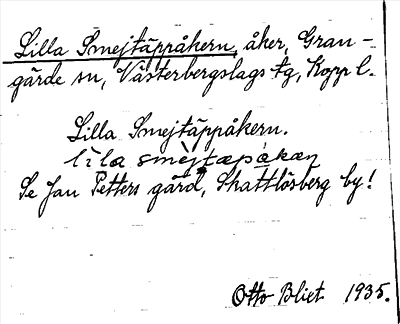 Lilla Smejtäppåkern, åker, Gran-
gärde sn, Västerbergslags tg, Kopp l.
Lilla Smejtäppåkern.
lila smèjtæpåkæṇ
Se Jan Petters gård, Skattlösberg by!
Otto Blixt 1935.